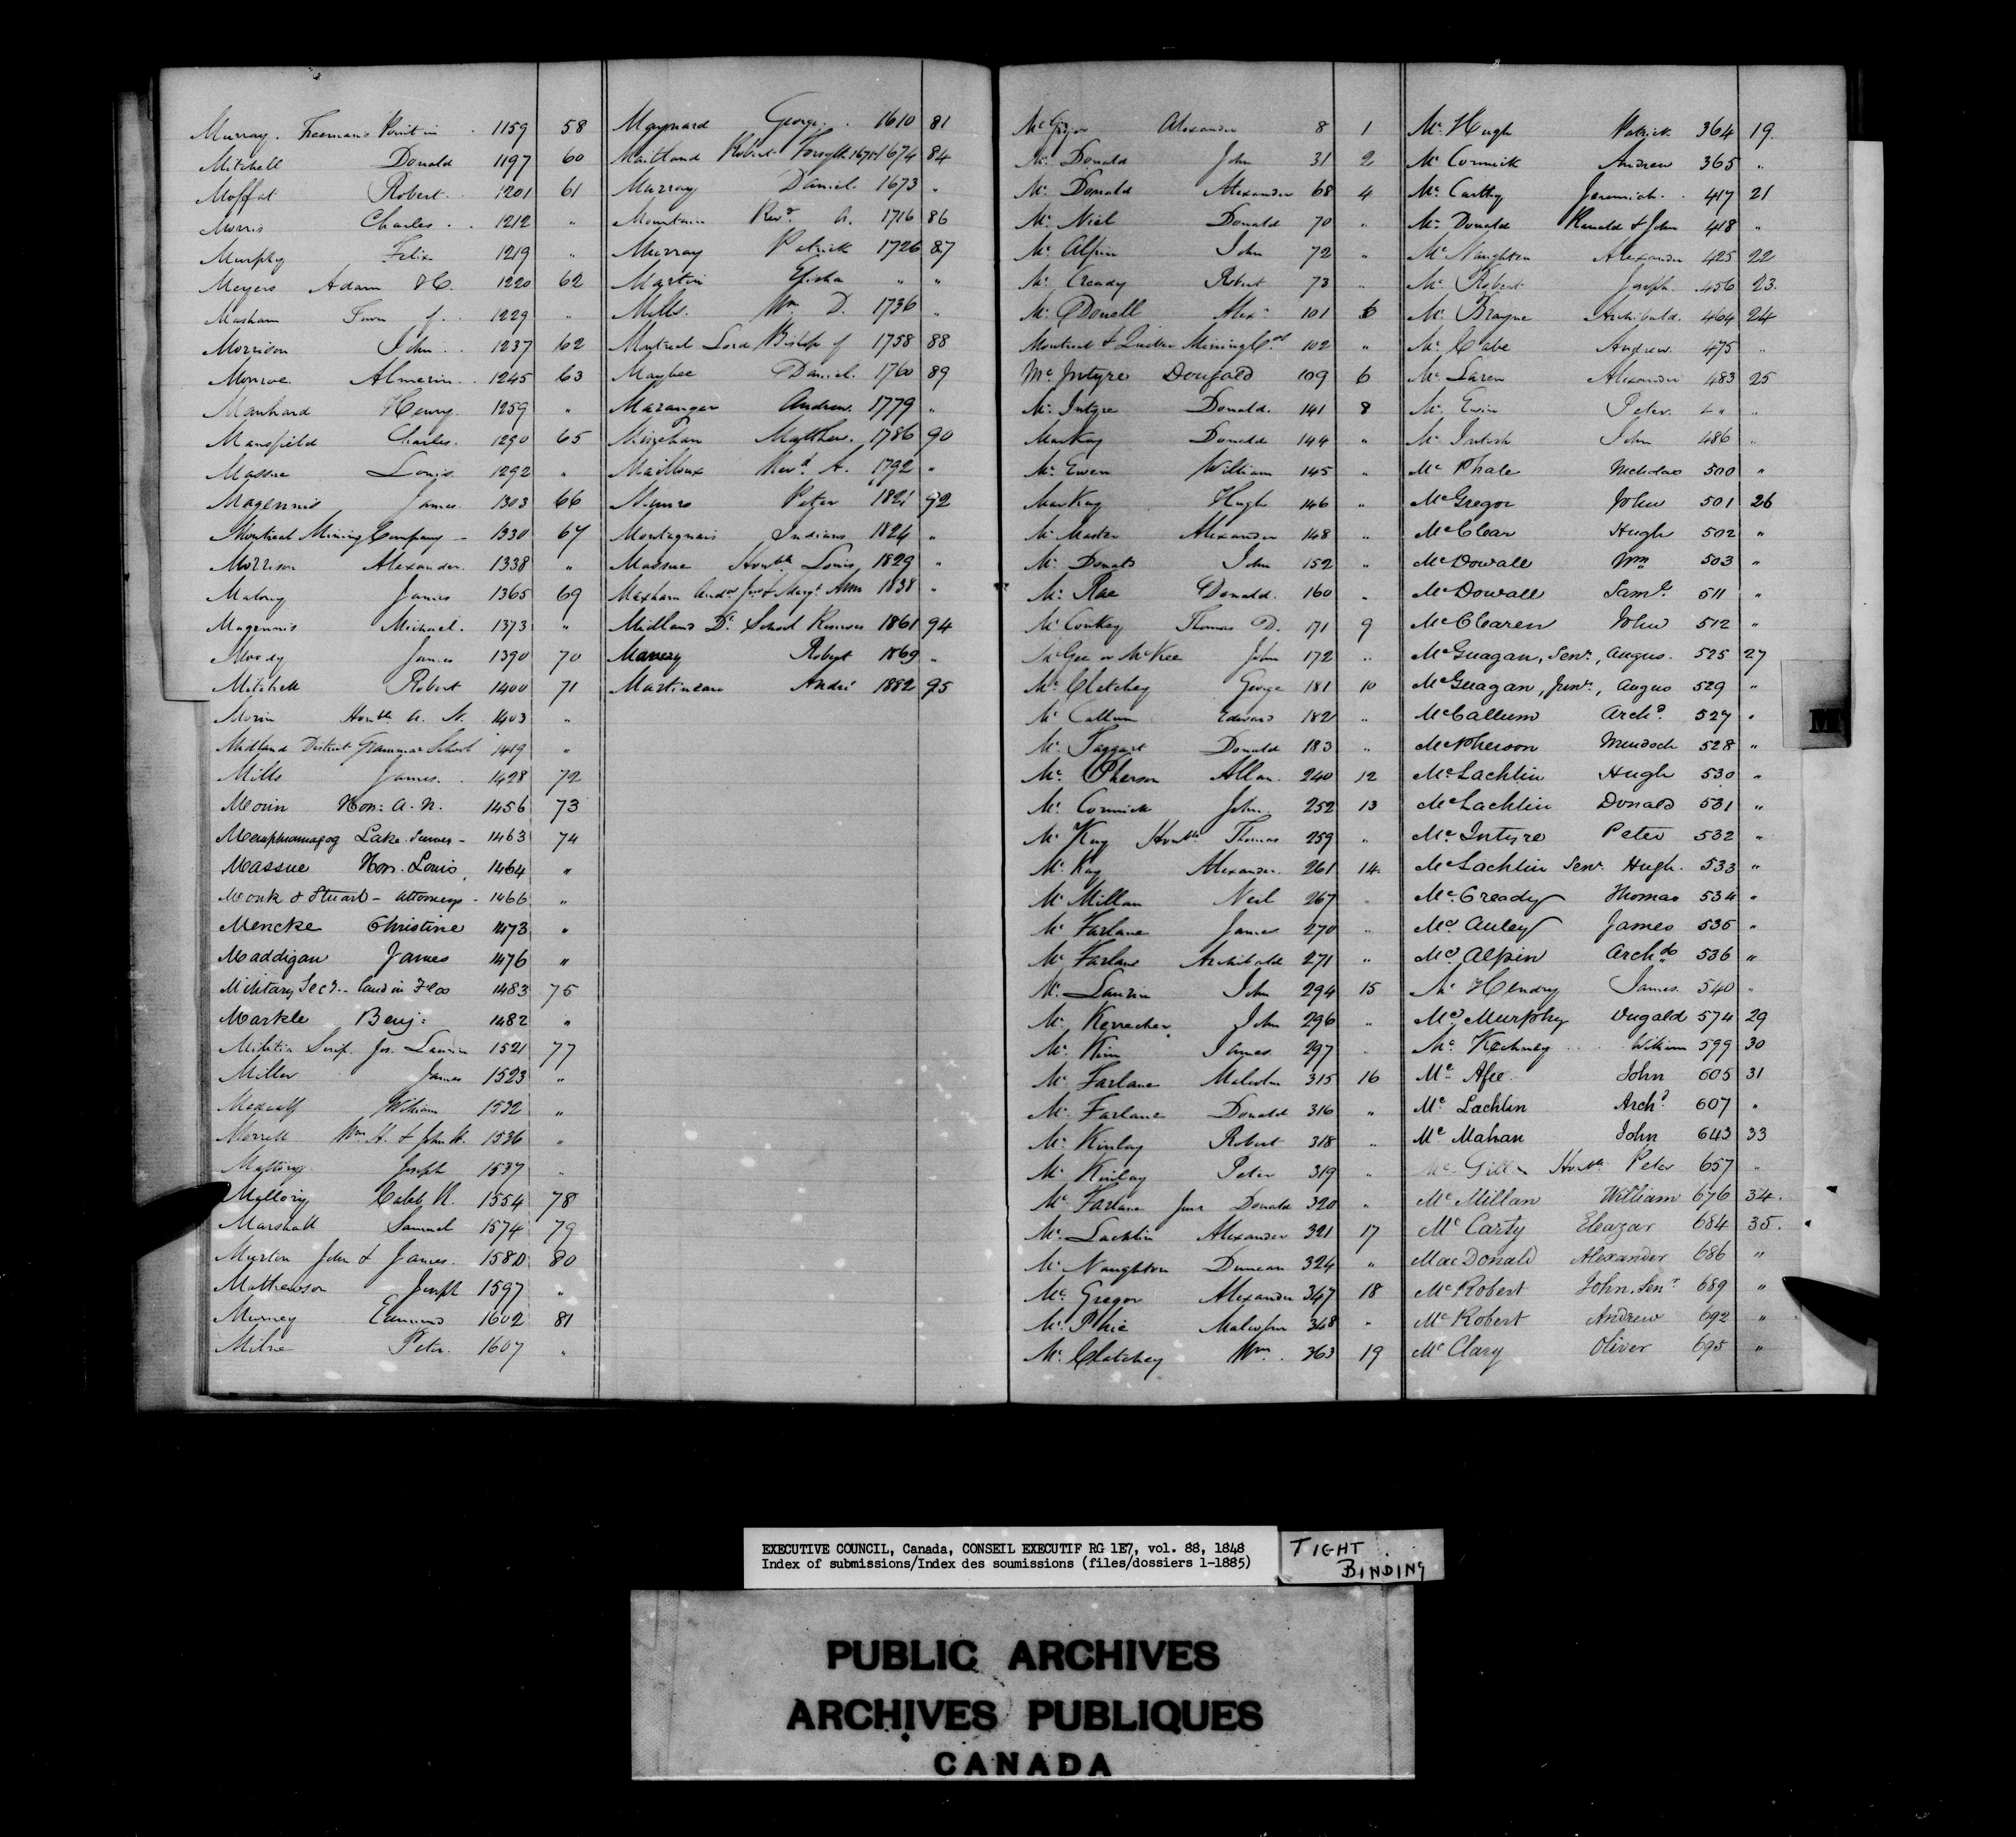 Murray. Freeman's Point in . 1159 58
Mitchell Donald 1197 60
Moffat Robert . 1201 61
Morris Charles . . 1212 "
Murphy Felix 1219 "
Meyers Adam & C. 1220 62
Masham Town of . 1229 "
Morrison John . . 1237 62
Monroe Almerin . . 1245 63
Manhard Henry. 1259 "
Mansfield Charles. 1290 65
Massue Louis. 1292 "
Magennis James. 1303 66
Montreal Mining Company - 1330 67
Morrison Alexander. 1338 "
Malony James 1365 69
Magennis Michael. 1373 "
Moody James 1390 70
Mitchell Robert 1400 71
Morin Honble A. N. 1403 "
Midland District Grammar School 1419 "
Mills James. . 1428 72
Morin Hon: A. N. 1456 73
Memphramagog Lake - 1463 74
Massue Hon. Louis, 1464 "
Monk & Stuart - Attorneys - 1466 "
Mencke Christine 1473 "
Maddigan James 1476 "
Military Secy. - land in Flos 1483 75
Markle Benj: 1482 "
Militia Scrip. Jos. 1521 77
Miller James 1523 "
Medcalf William 1532 "
Morrell Wm H. & John H. 1536 "
Joseph 1537 "
Mallory Caleb R. 1554 78
Marshall Samuel 1574 79
Murton John & James. 1580 80
Mathewson Joseph 1597 "
Murney Edmund 1602 81
Milne Peter. 1607 "
Maynard George. . 1610 81
Maitland Robert Forsyth 1674 84
Murray Daniel. 1673 "
Mountain Revd. A. 1716 86
Murray Patrick 1726 87
Martin " "
Mills. Wm D. 1736 "
Montreal Lord Bishop of 1758 88
Maybee Daniel. 1760 89
Andrew. 1779 "
Matthew. 1786 90
Mailloux Revd. A. 1792 "
Munro Peter 1821 92
Montagnais Indians 1824 "
Massue Honble Louis 1829 "
Maxham Andw Jas & Margt Ann 1838 "
Midland Dt. School Reserves 1861 94
Robert 1869 "
Martineau André 1882 95
McGregor Alexander 8 1
Mc Donald John 31 2
Mc Donald Alexander 68 4
Mc Niel Donald 70 "
Mc Alpin John 72 "
Mc Cready Robert 73 "
Mc Donell Alexr 101 6
Montreal & Quebec Mining Cos 102 "
Mc Intyre Dougald 109 6
Mc Intyre Donald. 141 8
MacKay Donald 144 "
Mc Ewen William 145 "
MacKay Hugh 146 "
Mc Master Alexander 148 "
Mc Donald John 152 "
Mc Rae Donald. 160 "
Mc Conkey Thomas D. 171 9
McGee or McKee John 172 "
Mc Clatchey George 181 10
Mc Callum Edward 182 "
Mc Taggart Donald 183 "
Mc Pherson Allan. 240 12
Mc Cormick John 252 13
Mc Kay Honble Thomas 259 "
Mc Kay Alexander. 261 14
Mc Millan Neil 267 "
Mc Farlane James 270 "
Mc Farlane Archibald 271 "
Mc Laurin John 294 15
Mc Kerracher John 296 "
Mc Kim James. 297 "
Mc Farlane Malcolm 315 16
Mc Farlane Donald 316 "
Mc Kinlay Robert 318 "
Mc Kinlay Peter 319 "
Mc Farlane Junr Donald 320 "
Mc Lachlin Alexander 321 17
Mc Naughton Duncan 324 "
Mc Gregor Alexander 347 18
Mc Phie Malcolm 348 "
Mc Clatchey Wm. 363 19
Mc Hugh Patrick 364 19
Mc Cormick Andrew 365 "
Mc Carthy Jeremiah. . 417 21
Mc Donald Ranald & John 418 "
Mc Naughton Alexander 425 22
Mc Robert Joseph. 456 23.
Mc Brayne Archibald. 464 24
Mc Cabe Andrew. 475 "
Mc Laren Alexander 483 25
Mc Ewin Peter. "
Mc Intosh John 486 "
Mc Phale Nicholas 500 "
McGregor John 501 26
McClean Hugh 502 "
McDowall Wm 503 "
McDowall Saml. 511 "
McClaren John 512 "
McGuagan, Senr., Angus. 525 27
McGuagan, Junr., Angus 529 "
McCallum Archd. 527 "
McPherson Murdoch 528 "
McLachlin Hugh 530 "
McLachlin Donald 531 "
McIntyre Peter 532 "
McLachlin Senr. Hugh. 533 "
McCready Thomas 534 "
McAuley James 535 "
McAlpin Archd. 536 "
Mc Hendry James. 540 "
McMurphy Dugald 574 29
Mc Kechney William 599 30
Mc Afee. John 605 31
Mc Lachlin Archd. 607 "
Mc Mahan John 643 33
Mc Gill Honble. Peter 657 "
McMillan William 676 34.
McCarty Eleazar 684 35.
MacDonald Alexander 686 "
McRobert John, Senr. 689 "
McRobert Andrew 692 "
McClary Oliver 695 "
M
EXECUTIVE COUNCIL, Canada, CONSEIL EXECUTIF RG 1E7, vol. 88, 1848
Index of submissions/Index des soumissions (files/dossiers 1-1885)
TIGHT
BINDING
PUBLIC ARCHIVES
ARCHIVES PUBLIQUES
CANADA